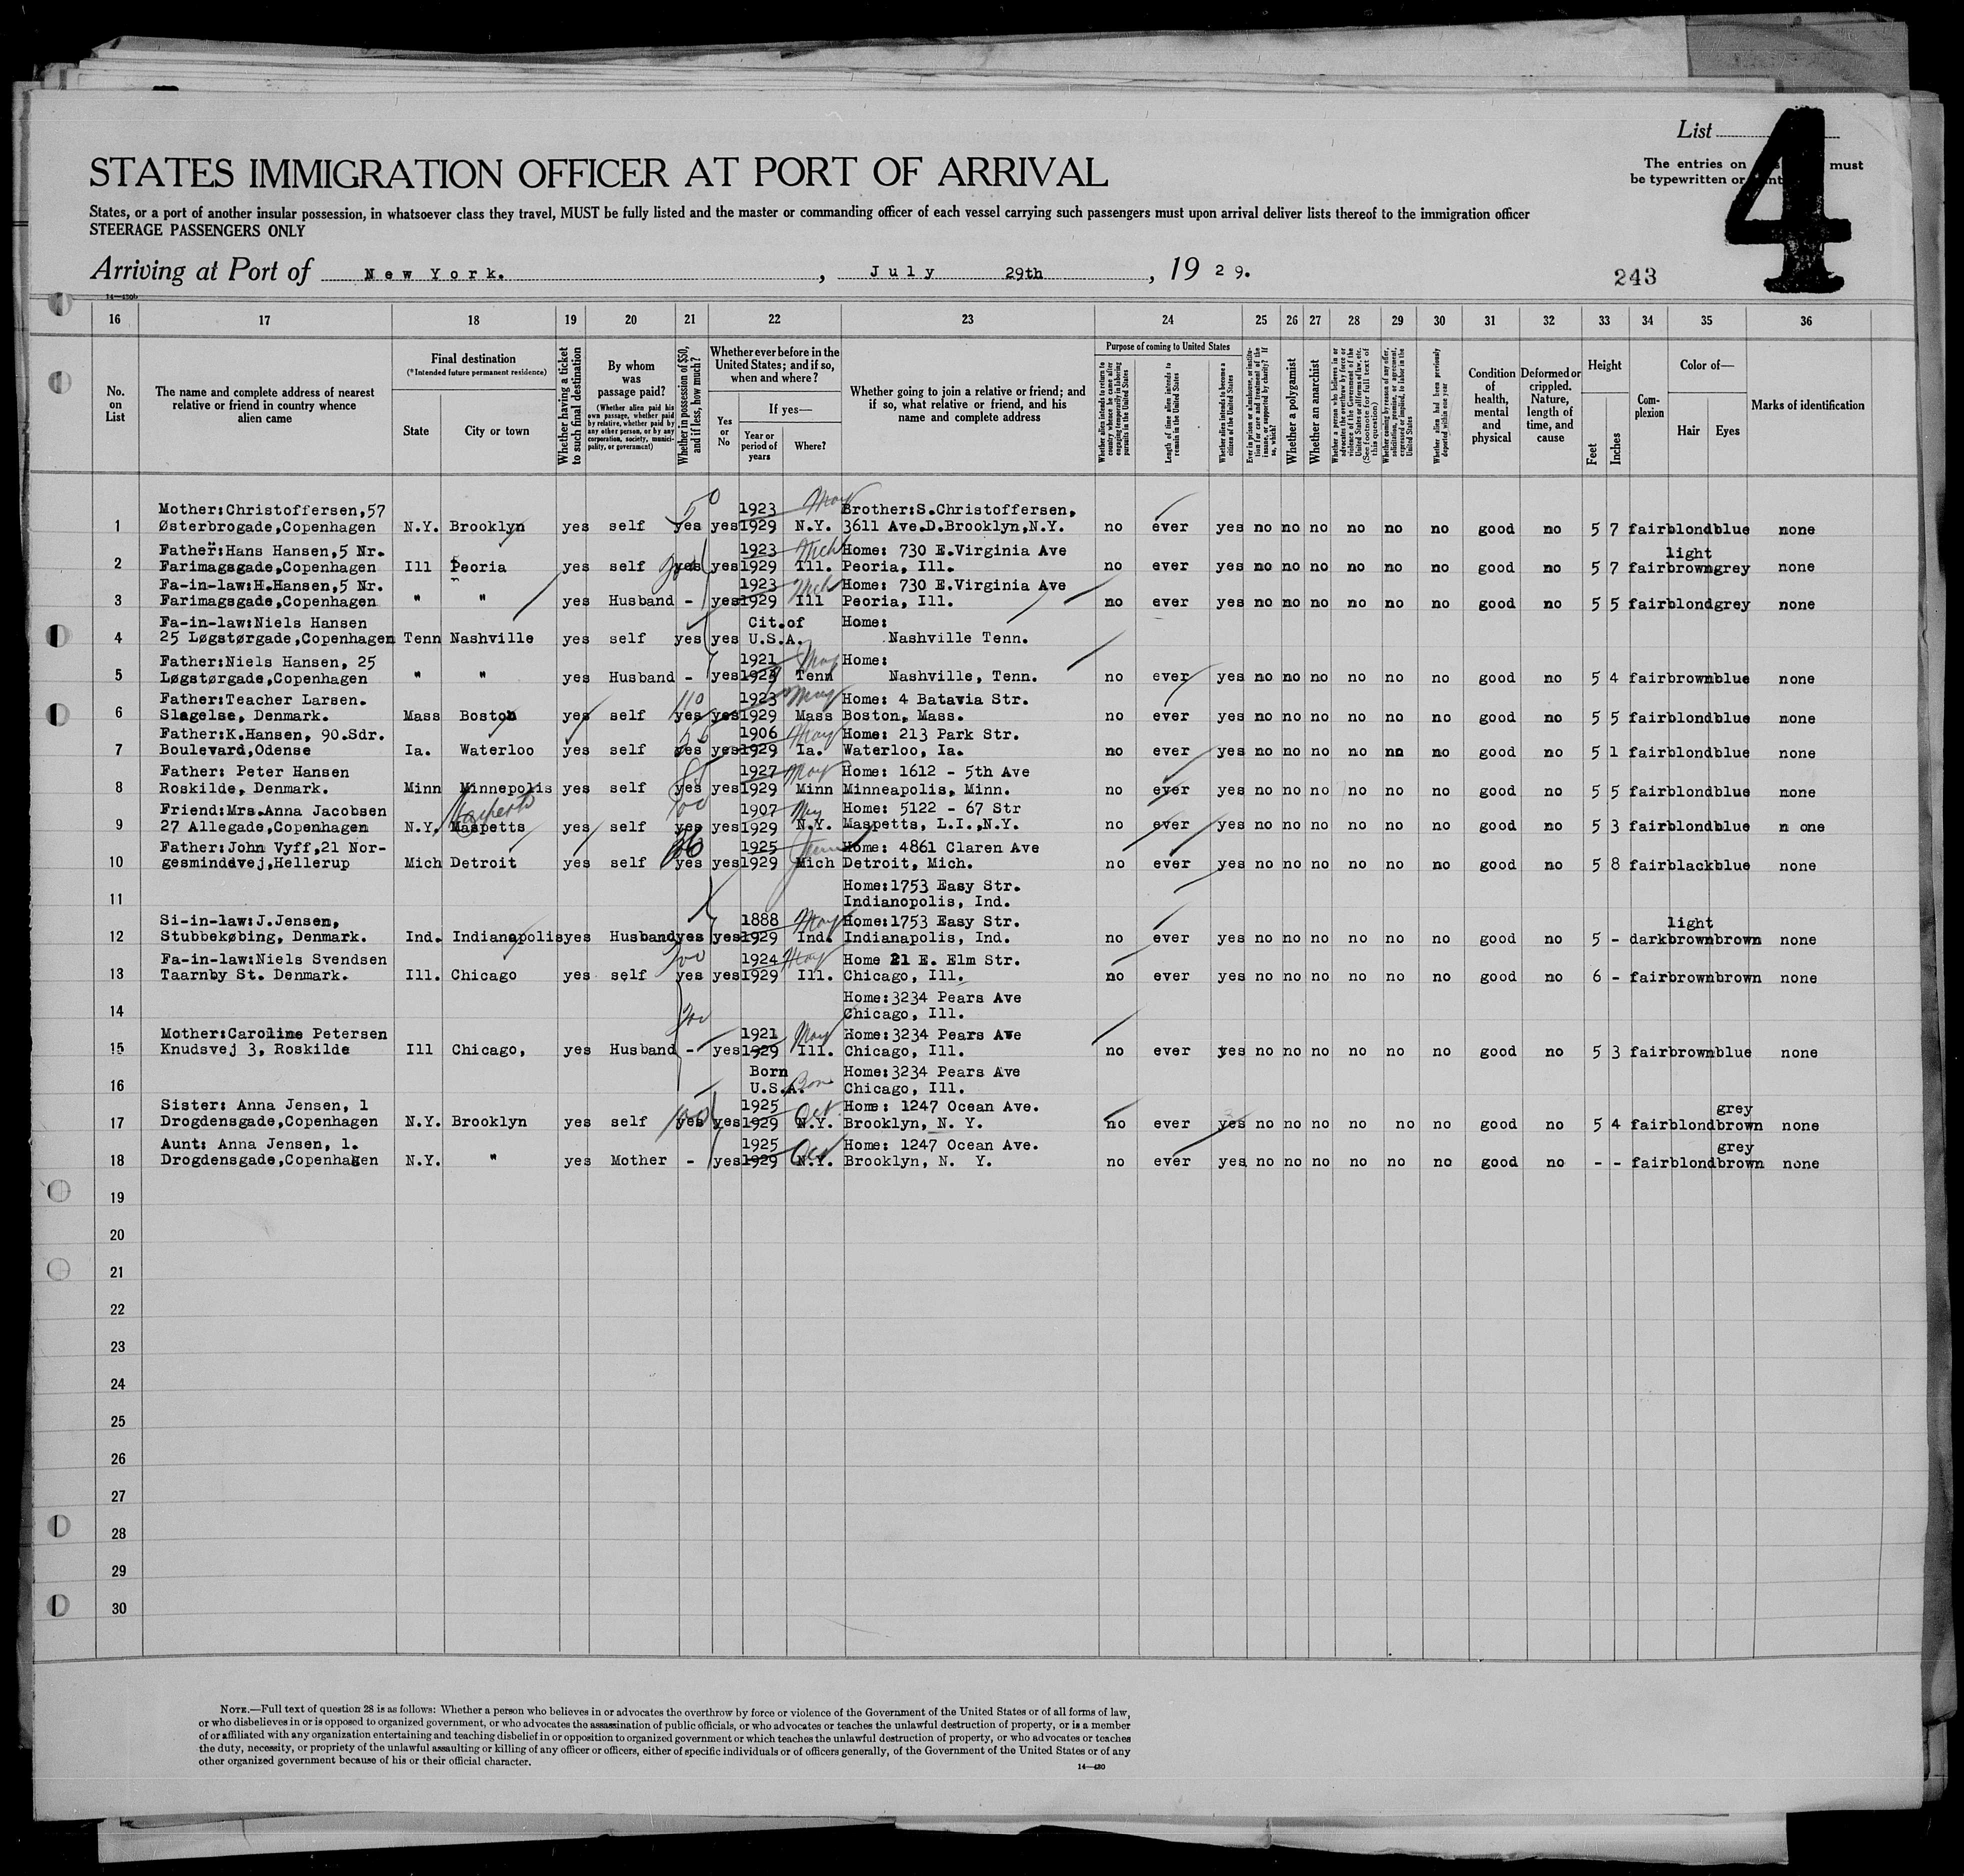 List
4
The entries on must
be typewritten or
STATES IMMIGRATION OFFICER AT PORT OF ARRIVAL
States, or a port of another insular possession, in whatsoever class they travel, MUST be fully listed and the master or commanding officer of each vessel carrying such passengers must upon arrival deliver lists thereof to the immigration officer
STEERAGE PASSENGERS ONLY
Arriving at Port of New York. , July 29th , 19 29.
243
14—430b
16 17 18 19 20 21 22 23 24 25 26 27 28 29 30 31 32 33 34 35 36
No. on List
The name and complete address of nearest relative or friend in country whence alien came
Final destination
(*Intended future permanent residence)
State City or town
Whether having a ticket to such final destination
By whom was passage paid?
(Whether alien paid his own passage, whether paid by relative, whether paid by any other person, or by any corporation, society, municipality, or government)
Whether in possession of $50, and if less, how much?
Whether ever before in the United States; and if so, when and where?
Yes or No
If yes—
Year or period of years Where?
Whether going to join a relative or friend; and if so, what relative or friend, and his name and complete address
Purpose of coming to United States
Whether alien intends to return to country whence he came after engaging temporarily in laboring pursuits in the United States
Length of time alien intends to remain in the United States
Whether alien intends to become a citizen of the United States
Ever in prison or almshouse, or institution for care and treatment of the insane, or supported by charity? If so, which?
Whether a polygamist
Whether an anarchist
Whether a person who believes in or advocates the overthrow by force or violence of the Government of the United States or all forms of law, etc. (See footnote for full text of this question)
Whether coming by reason of any offer, solicitation, promise, or agreement, expressed or implied, to labor in the United States
Whether alien had been previously deported within one year
Condition of health, mental and physical
Deformed or crippled. Nature, length of time, and cause
Height
Feet Inches
Complexion
Color of—
Hair Eyes
Marks of identification
Mother:Christoffersen,57 1923 May Brother:S.Christoffersen,
1 Østerbrogade,Copenhagen N.Y. Brooklyn yes self yes yes 1929 N.Y. 3611 Ave.D.Brooklyn,N.Y. no ever yes no no no no no no good no 5 7 fair blond blue none
Father:Hans Hansen,5 Nr. 1923 Home: 730 E.Virginia Ave light
2 Farimagsgade,Copenhagen Ill Peoria yes self yes yes 1929 Ill. Peoria, Ill. no ever yes no no no no no no good no 5 7 fair brown grey none
Fa-in-law:H.Hansen,5 Nr. 1923 Home: 730 E.Virginia Ave
3 Farimagsgade,Copenhagen " " yes Husband - yes 1929 Ill Peoria, Ill. no ever yes no no no no no no good no 5 5 fair blond grey none
Fa-in-law:Niels Hansen Cit.of Home:
4 25 Løgstørgade,Copenhagen Tenn Nashville yes self yes yes U.S.A. Nashville Tenn.
Father:Niels Hansen, 25 1921 May Home:
5 Løgstørgade,Copenhagen " " yes Husband - yes 1929 Tenn Nashville, Tenn. no ever yes no no no no no no good no 5 4 fair brown blue none
Father:Teacher Larsen. 110 1923 May Home: 4 Batavia Str.
6 Slagelse, Denmark. Mass Boston yes self yes yes 1929 Mass Boston, Mass. no ever yes no no no no no no good no 5 5 fair blond blue none
Father:K.Hansen, 90.Sdr. 1906 May Home: 213 Park Str.
7 Boulevard,Odense Ia. Waterloo yes self yes yes 1929 Ia. Waterloo, Ia. no ever yes no no no no nn no good no 5 1 fair blond blue none
Father: Peter Hansen 1927 May Home: 1612 - 5th Ave
8 Roskilde, Denmark. Minn Minnepolis yes self yes yes 1929 Minn Minneapolis, Minn. no ever yes no no no no no no good no 5 5 fair blond blue none
Friend:Mrs.Anna Jacobsen 1907 Home: 5122 - 67 Str
9 27 Allegade,Copenhagen N.Y. Maspetts yes self yes yes 1929 N.Y. Maspetts, L.I.,N.Y. no ever yes no no no no no no good no 5 3 fair blond blue n one
Father:John Vyff,21 Nor- 1925 Home: 4861 Claren Ave
10 gesmindevej,Hellerup Mich Detroit yes self yes yes 1929 Mich Detroit, Mich. no ever yes no no no no no no good no 5 8 fair black blue none
Home:1753 Easy Str.
11 Indianopolis, Ind.
Si-in-law:J.Jensen, 1888 May Home:1753 Easy Str. light
12 Stubbekøbing, Denmark. Ind. Indianapolis yes Husband yes yes 1929 Ind. Indianapolis, Ind. no ever yes no no no no no no good no 5 - dark brown brown none
Fa-in-law:Niels Svendsen 1924 May Home 21 E. Elm Str.
13 Taarnby St. Denmark. Ill. Chicago yes self yes yes 1929 Ill. Chicago, Ill. no ever yes no no no no no no good no 6 - fair brown brown none
Home:3234 Pears Ave
14 Chicago, Ill.
Mother:Caroline Petersen 1921 May Home:3234 Pears Ave
15 Knudsvej 3, Roskilde Ill Chicago, yes Husband - yes 1929 Ill. Chicago, Ill. no ever yes no no no no no no good no 5 3 fair brown blue none
Born Home:3234 Pears Ave
16 U.S.A. Chicago, Ill.
Sister: Anna Jensen, 1 100 1925 Oct Home: 1247 Ocean Ave. grey
17 Drogdensgade,Copenhagen N.Y. Brooklyn yes self yes yes 1929 N.Y. Brooklyn, N. Y. no ever yes no no no no no no good no 5 4 fair blond brown none
Aunt: Anna Jensen, 1. 1925 Oct Home: 1247 Ocean Ave. grey
18 Drogdensgade,Copenhagen N.Y. " yes Mother - yes 1929 N.Y. Brooklyn, N. Y. no ever yes no no no no no no good no - - fair blond brown none
19
20
21
22
23
24
25
26
27
28
29
30
NOTE.—Full text of question 28 is as follows: Whether a person who believes in or advocates the overthrow by force or violence of the Government of the United States or of all forms of law,
or who disbelieves in or is opposed to organized government, or who advocates the assassination of public officials, or who advocates or teaches the unlawful destruction of property, or is a member
of or affiliated with any organization entertaining and teaching disbelief in or opposition to organized government or which teaches the unlawful destruction of property, or who advocates or teaches
the duty, necessity, or propriety of the unlawful assaulting or killing of any officer or officers, either of specific individuals or of officers generally, of the Government of the United States or of any
other organized government because of his or their official character.
14—430